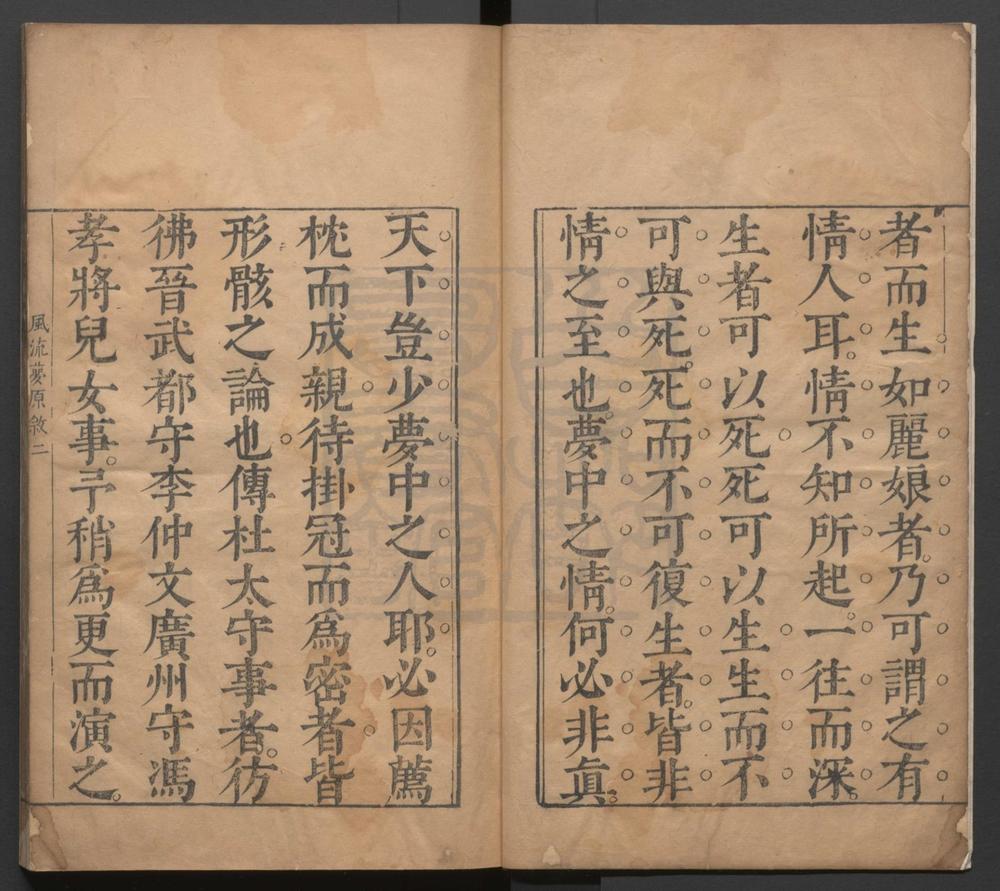 者而生如麗娘者乃可謂之有
情人耳情不知所起一往而深
生者可以死死可以生生而不
可與死死而不可復生者皆非
情之至也夢中之情何必非眞
天下豈少夢中之人耶必因薦
枕而成親待掛冠而爲密者皆
形骸之論也傳杜太守事者彷
彿晉武都守李仲文廣州守馮
孝將兒女事予稍爲更而演之
風流夢原敘 二